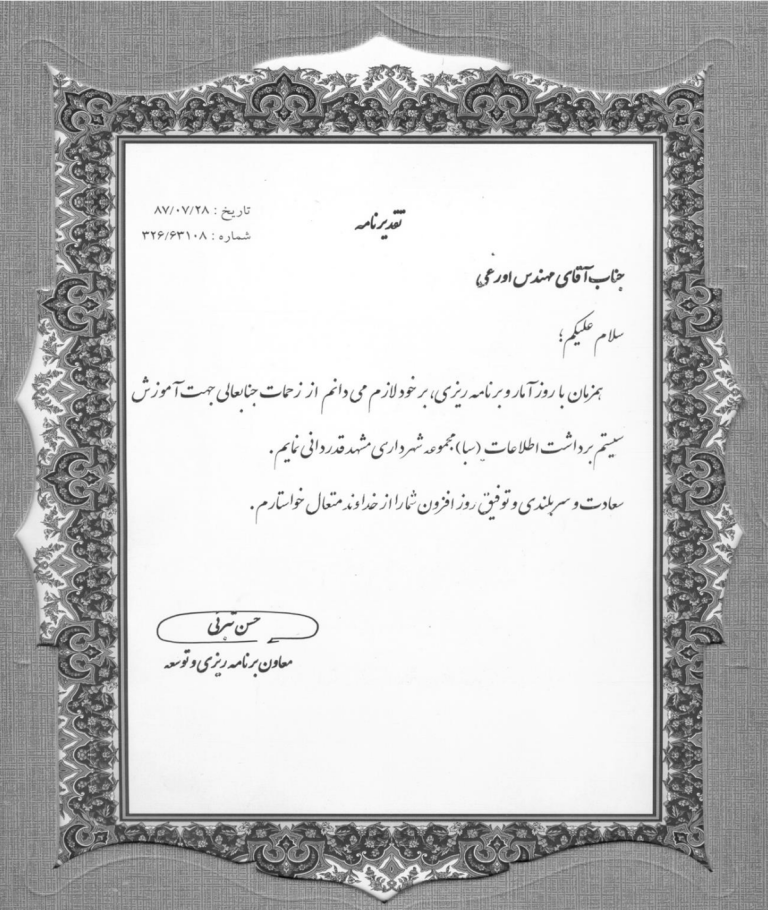 تاریخ : ۸۷/۰۷/۲۸
تقدیرنامه
شماره : ۳۲۶/۶۳۱۰۸
جناب آقای مهندس اورعی
سلام علیکم؛
همزمان با روز آمار و برنامه ریزی، بر خود لازم می دانم از زحمات جنابعالی جهت آموزش
سیستم برداشت اطلاعات (سبا) مجموعه شهرداری مشهد قدردانی نمایم .
سعادت و سربلندی و توفیق روز افزون شما را از خداوند متعال خواستارم .
حسن
معاون برنامه ریزی و توسعه